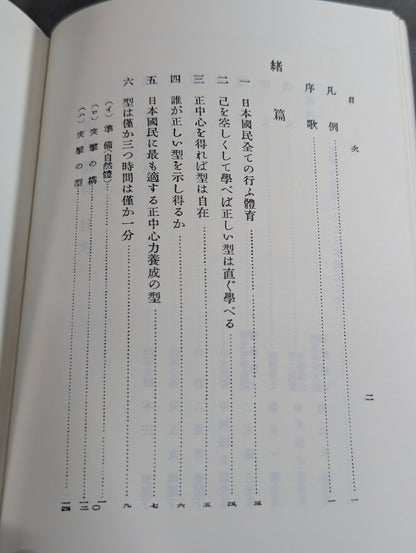 目次
凡例……一
序歌……一
緒篇
一 日本國民全ての行ふ體育……三
二 己を空しくして學べば正しい型は直ぐ學べる……四
三 正中心を得れば型は自在……五
四 誰が正しい型を示し得るか……六
五 日本國民に最も適する正中心力養成の型……七
六 型は僅か三つ時間は僅か一分……九
(イ) 準備(自然體)……一〇
(ロ) 突撃の構……一二
(ハ) 突撃の型……一四
二